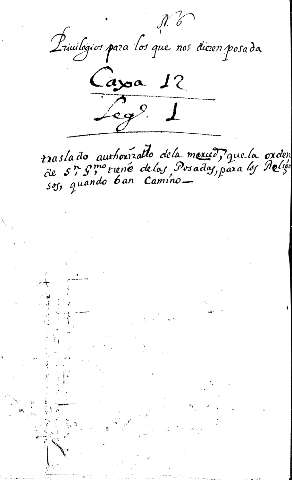 N. 6
Privilegios para los que nos dieren posada
Caxa 12
Leg.º 1
traslado authorizado de la merced, que la orden
de S.r G.mo tiene de las Posadas, para los Religio
sos, quando ban Camino—